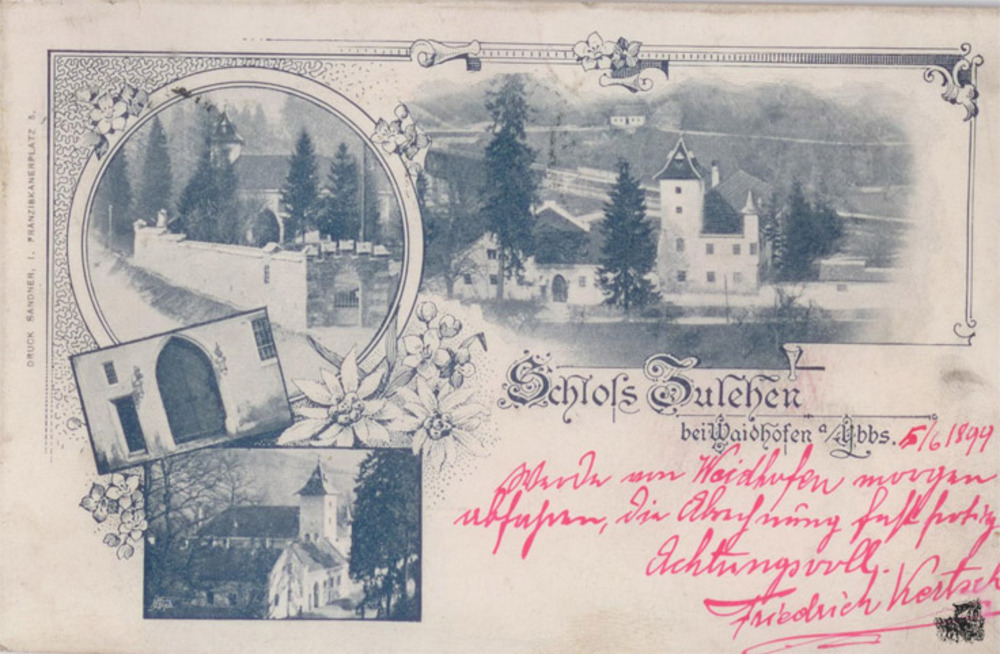 DRUCK SANDNER, I. FRANZISKANERPLATZ 5.
Schloſs Zulehen
bei Waidhofen a/Ybbs. 5/6 1899
Werde von Waidhofen morgen
abfahren, die Abrechnung fast fertig
Achtungsvoll.
Friedrich